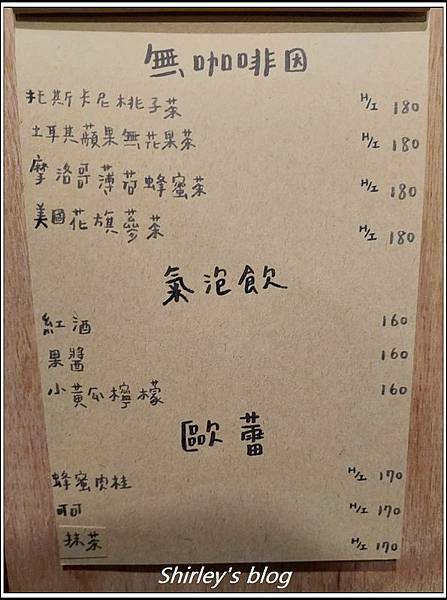 無咖啡因
托斯卡尼桃子茶 H/I 180
土耳其蘋果無花果茶 H/I 180
摩洛哥薄荷蜂蜜茶 H/I 180
美國花旗蔘茶 H/I 180
氣泡飲
紅酒 160
果醬 160
小黃瓜檸檬 160
歐蕾
蜂蜜肉桂 H/I 170
可可 H/I 170
抹茶 H/I 170
Shirley's blog